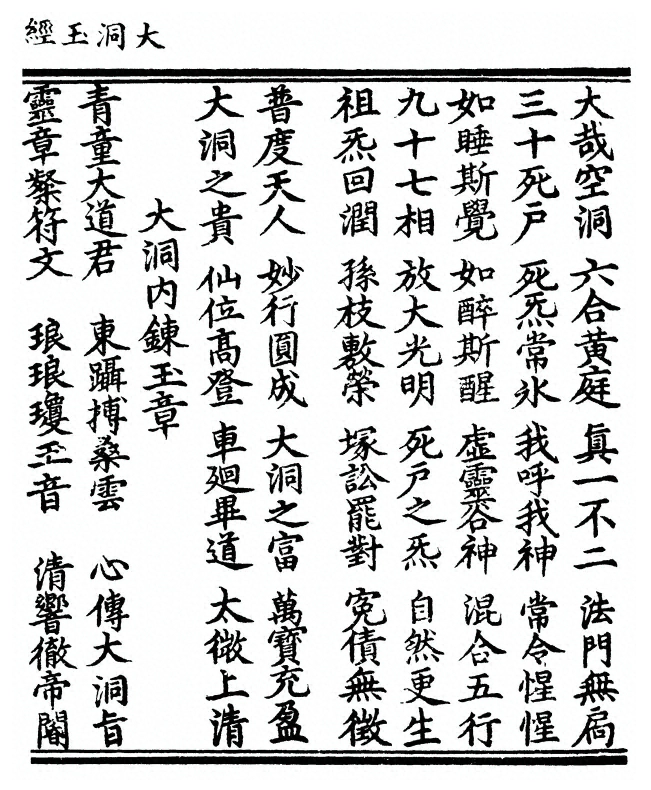 大洞玉經
大哉空洞 六合黃庭 眞一不二 法門無扃
三十死戸 死炁常氷 我呼我神 常令惺惺
如睡斯覺 如醉斯醒 虛靈谷神 混合五行
九十七相 放大光明 死戸之炁 自然更生
祖炁回潤 孫枝敷榮 塚訟罷對 冤債無徵
普度天人 妙行圓成 大洞之富 萬寶充盈
大洞之貴 仙位高登 車廻畢道 太微上清
大洞內鍊玉章
青童大道君 東躡搏桑雲 心傳大洞旨
靈章粲符文 琅琅瓊玉音 清響徹帝閽